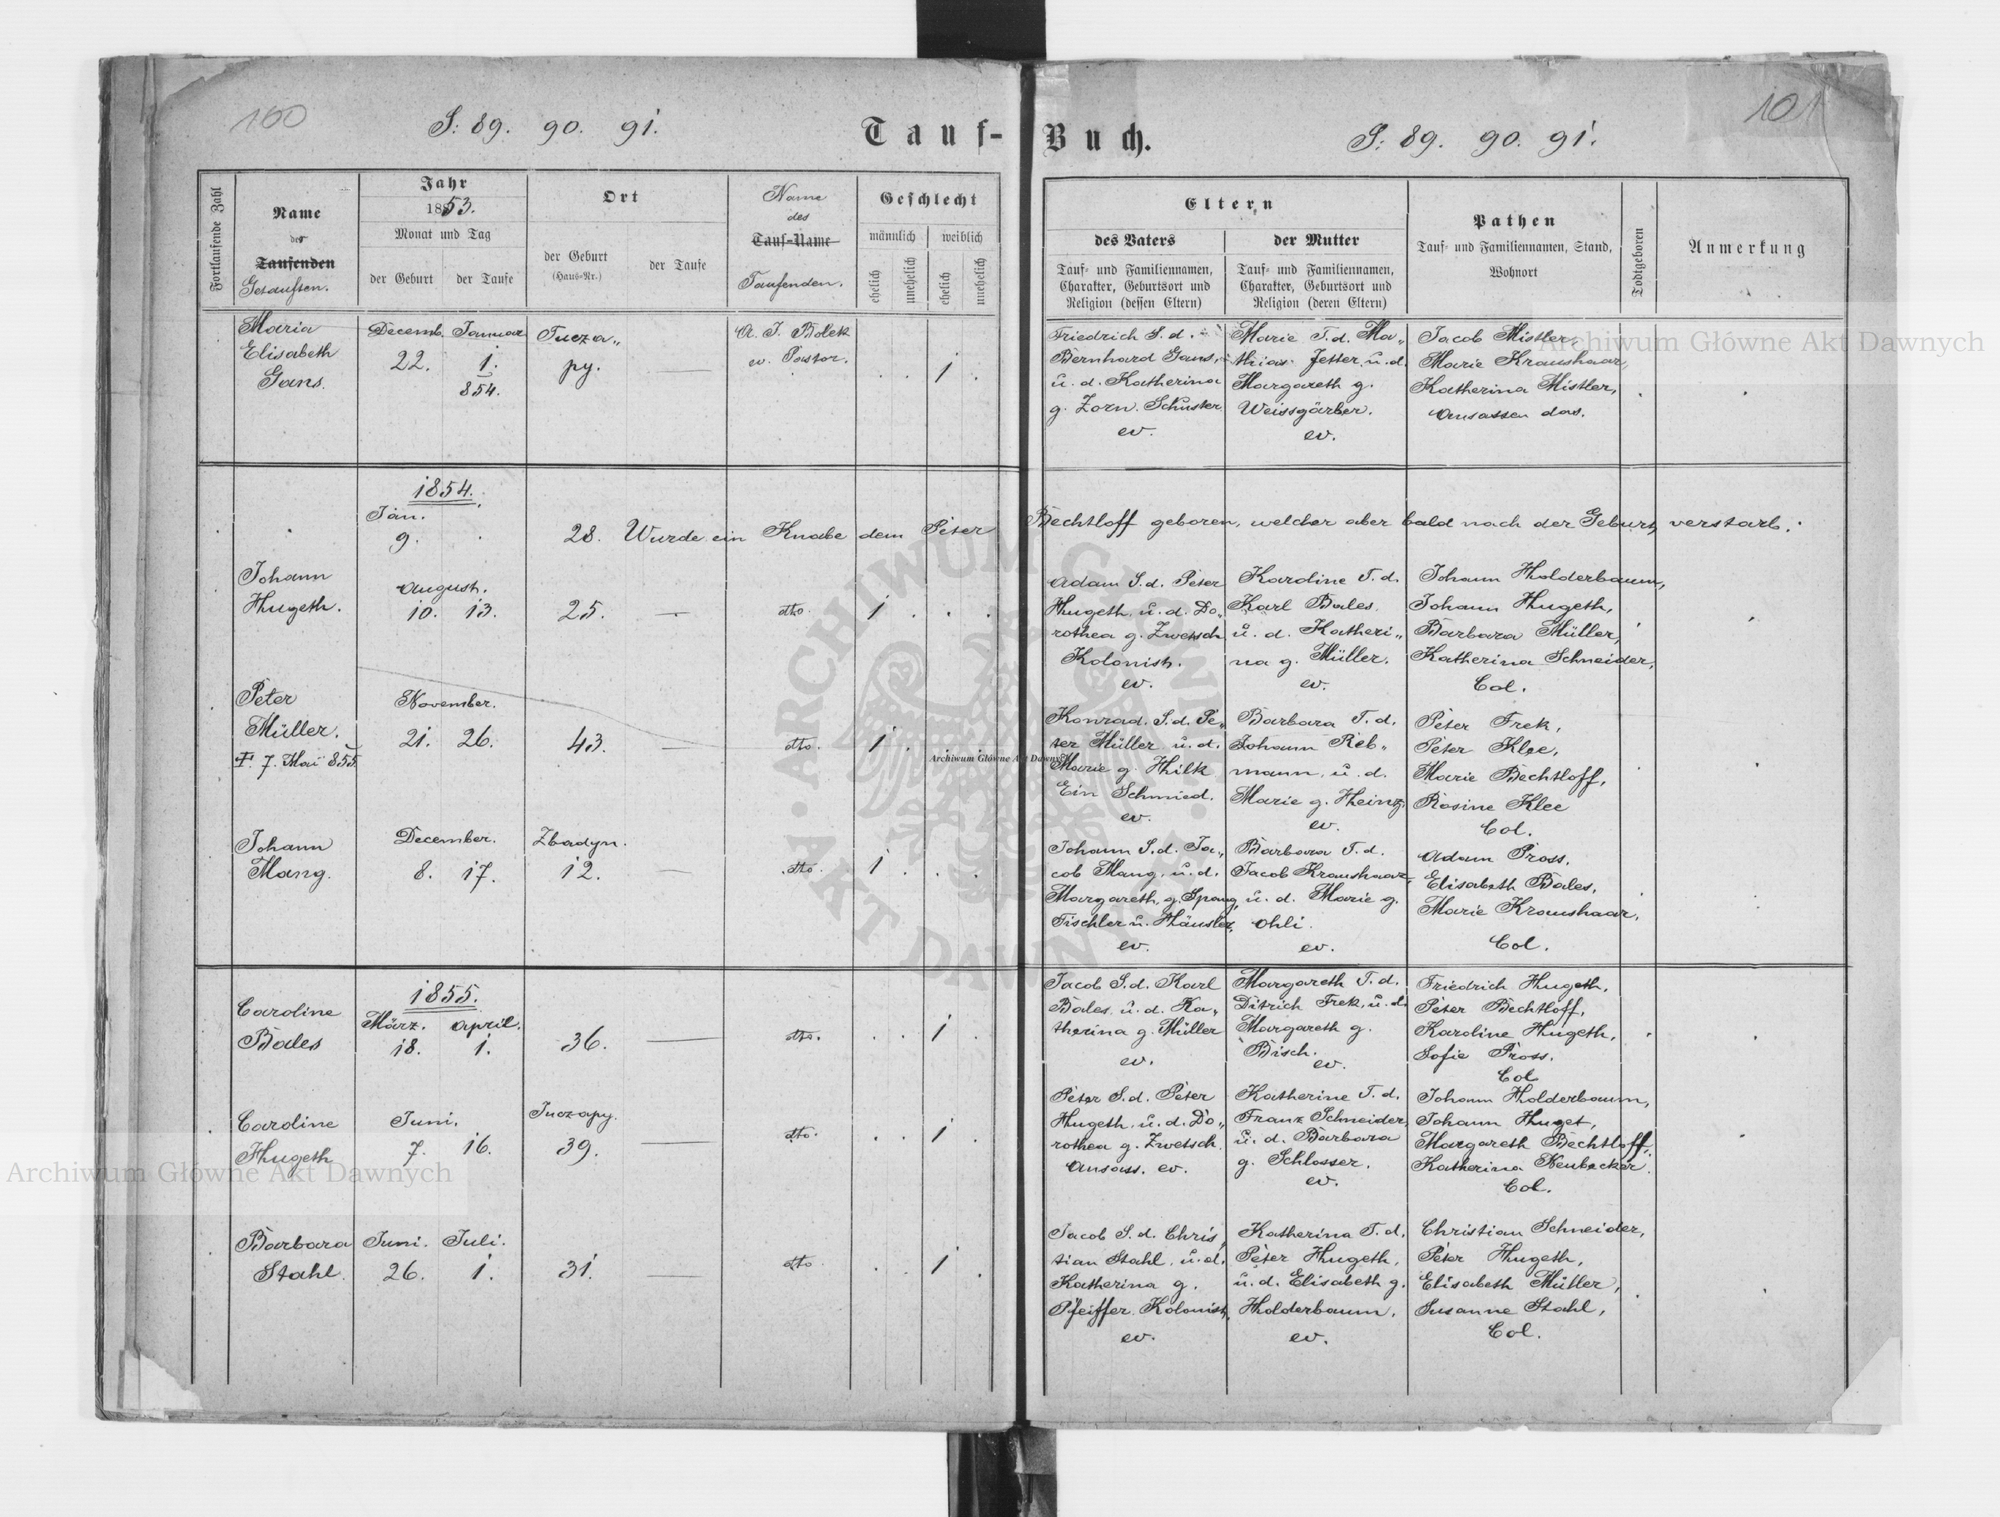 100
S: 89. 90. 91.
Tauf-
Buch.
S: 89. 90. 91.
101
Fortlaufende Zahl
Name
des
Taufenden
Getauften.
Jahr
1853.
Monat und Tag
der Geburt
der Taufe
Ort
der Geburt
(Haus-Nr.)
der Taufe
Name
des
Tauf-Name
Taufenden.
Geschlecht
männlich
weiblich
ehelich
unehelich
ehelich
unehelich
Eltern
des Vaters
Tauf- und Familiennamen,
Charakter, Geburtsort und
Religion (dessen Eltern)
der Mutter
Tauf- und Familiennamen,
Charakter, Geburtsort und
Religion (deren Eltern)
Pathen
Tauf- und Familiennamen, Stand,
Wohnort
Todtgeboren
Anmerkung
Maria
Elisabeth
Gans.
Decemb. Januar
22. 1.
854.
Tucza„
py.
A. J. Bolek
ev. Pastor.
1
Friedrich S. d.
Bernhard Gans,
u. d. Katherina
g. Zorn. Schuster
ev.
Marie T. d. Ma„
thias Jetter, u. d.
Margareth g.
Weissgärber.
ev.
Jacob Mistler,
Marie Kraushaar,
Katherina Mistler,
Ansassen das.
1854.
Jän.
9.
28. Wurde ein Knabe dem Peter Bechtloff geboren, welcher aber bald nach der Geburt verstarb.
Johann
Hugeth.
August.
10. 13.
25.
dto.
1
Adam S. d. Peter
Hugeth, u. d. Do„
rothea g. Zwetsch
Kolonist.
ev.
Karoline T. d.
Karl Bales.
u. d. Katheri„
na g. Müller.
ev.
Johann Holderbaum,
Johann Hugeth,
Barbara Müller,
Katherina Schneider,
Col.
Peter
Müller.
†. 7. Mai 855
November.
21. 26.
43.
dto.
1
Konrad. S. d. Pe„
ter Müller u. d.
Marie g. Hilk
Ein Schmied.
ev.
Barbara T. d.
Johann Reb„
mann, u. d.
Marie g. Heinz.
ev.
Peter Frek,
Peter Klee,
Marie Bechtloff,
Rosine Klee
Col.
Johann
Mang.
December.
8. 17.
Zbadyn.
12.
dto.
1
Johann S. d. Ja„
cob Mang, u. d.
Margareth, g. Spang,
Tischler u. Häusler,
ev.
Barbara T. d.
Jacob Kraushaar,
u. d. Marie g.
Ohli.
ev.
Adam Pross,
Elisabeth Bales,
Marie Kraushaar,
Col.
1855.
Caroline
Bales
März. April.
18. 1.
36.
dto.
1
Jacob S. d. Karl
Bales. u. d. Ka„
therina g. Müller
ev.
Margareth T. d.
Ditrich Frek, u. d.
Margareth g.
Bisch.
ev.
Friedrich Hugeth,
Peter Bechtloff,
Karoline Hugeth,
Sofie Pross.
Col.
Caroline
Hugeth
Juni.
7. 16.
Tuczapy.
39.
dto.
1
Peter S. d. Peter
Hugeth, u. d. Do„
rothea g. Zwetsch
Ansass. ev.
Katherine T. d.
Franz Schneider,
u. d. Barbara
g. Schlosser.
ev.
Johann Holderbaum,
Johann Huget,
Margareth Bechtloff,
Katherina Neubecker.
Col.
Barbara
Stahl.
Juni. Juli.
26. 1.
31.
dto.
1
Jacob S. d. Chris„
tian Stahl, u. d.
Katherina g.
Pfeiffer. Kolonist,
ev.
Katherina T. d.
Peter Hugeth,
u. d. Elisabeth g.
Holderbaum.
ev.
Christian Schneider,
Peter Hugeth,
Elisabeth Müller,
Susanne Stahl,
Col.
Archiwum Główne Akt Dawnych
Archiwum Główne Akt Dawnych
Archiwum Główne Akt Dawnych
ARCHIWUM GŁÓWNE AKT DAWNYCH